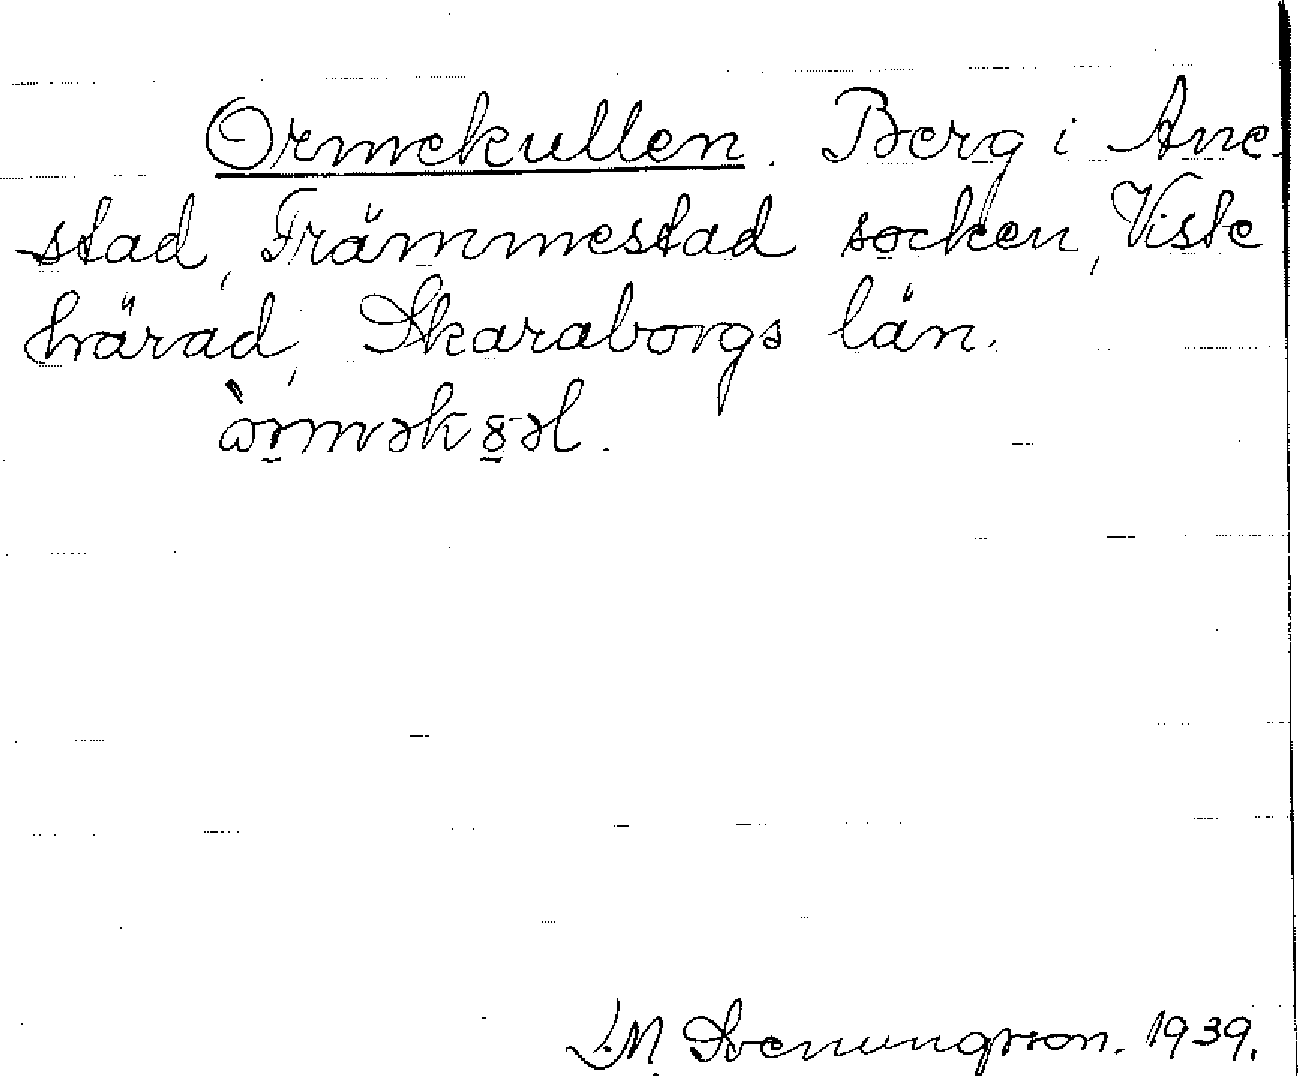 Ormekullen. Berg i Ane-
stad, Främmestad socken, Viste
härad, Skaraborgs län.
ὼrməkəl.
L.M. Svenungsson. 1939.